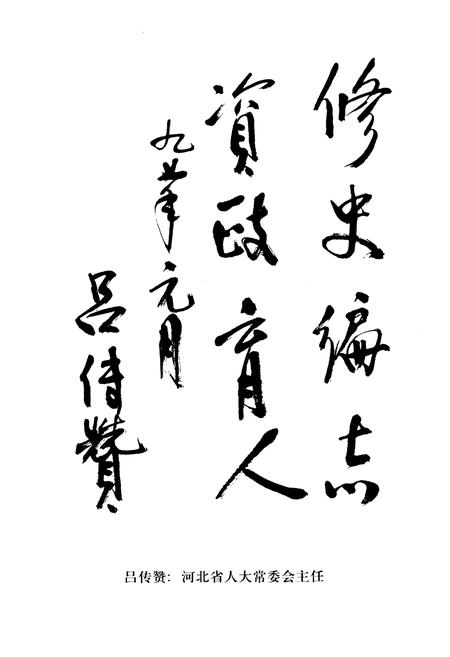 修史编志
資政育人
九七年元月
吕传赞
吕传赞：河北省人大常委会主任